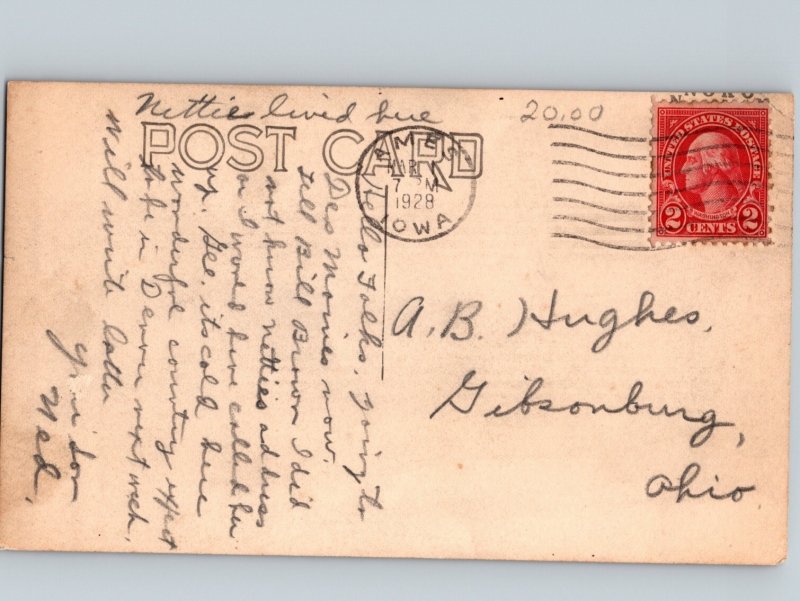 Netties lived here
20.00
POST CARD
AMES
7 PM
1928
IOWA
UNITED STATES POSTAGE
WASHINGTON
2 CENTS 2
Hello Folks, going to
Des Moines now.
Tell Bill Brown I did
not know Netties address
or I would have called her
up. Gee, its cold here
wonderful country expect
to be in Denver next week,
Will write later
Your son
Ned.
A. B. Hughes,
Gibsonburg,
Ohio